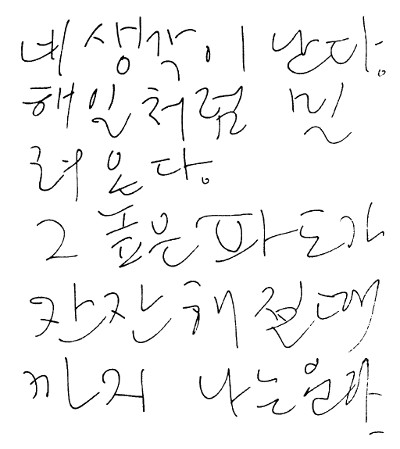 네 생각이 난다.
해일처럼 밀
려온다.
그 높은 파도가
잔잔해질때
까지 나는운다